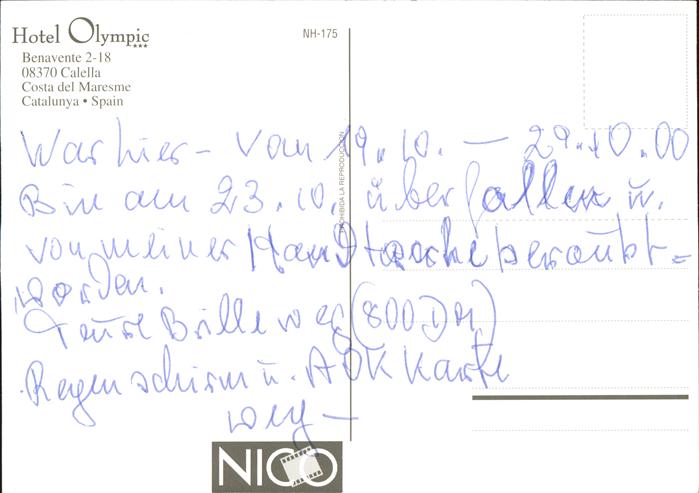 Hotel Olympic***
Benavente 2-18
08370 Calella
Costa del Maresme
Catalunya • Spain
NH-175
PROHIBIDA LA REPRODUCCION
War hier - vom 19.10. - 29.10.00
Bin am 23.10. überfallen u.
von meiner Handtasche beraubt -
worden.
Teure Brille weg (800 DM)
Regenschirm u. AOK Karte
weg -
NICO